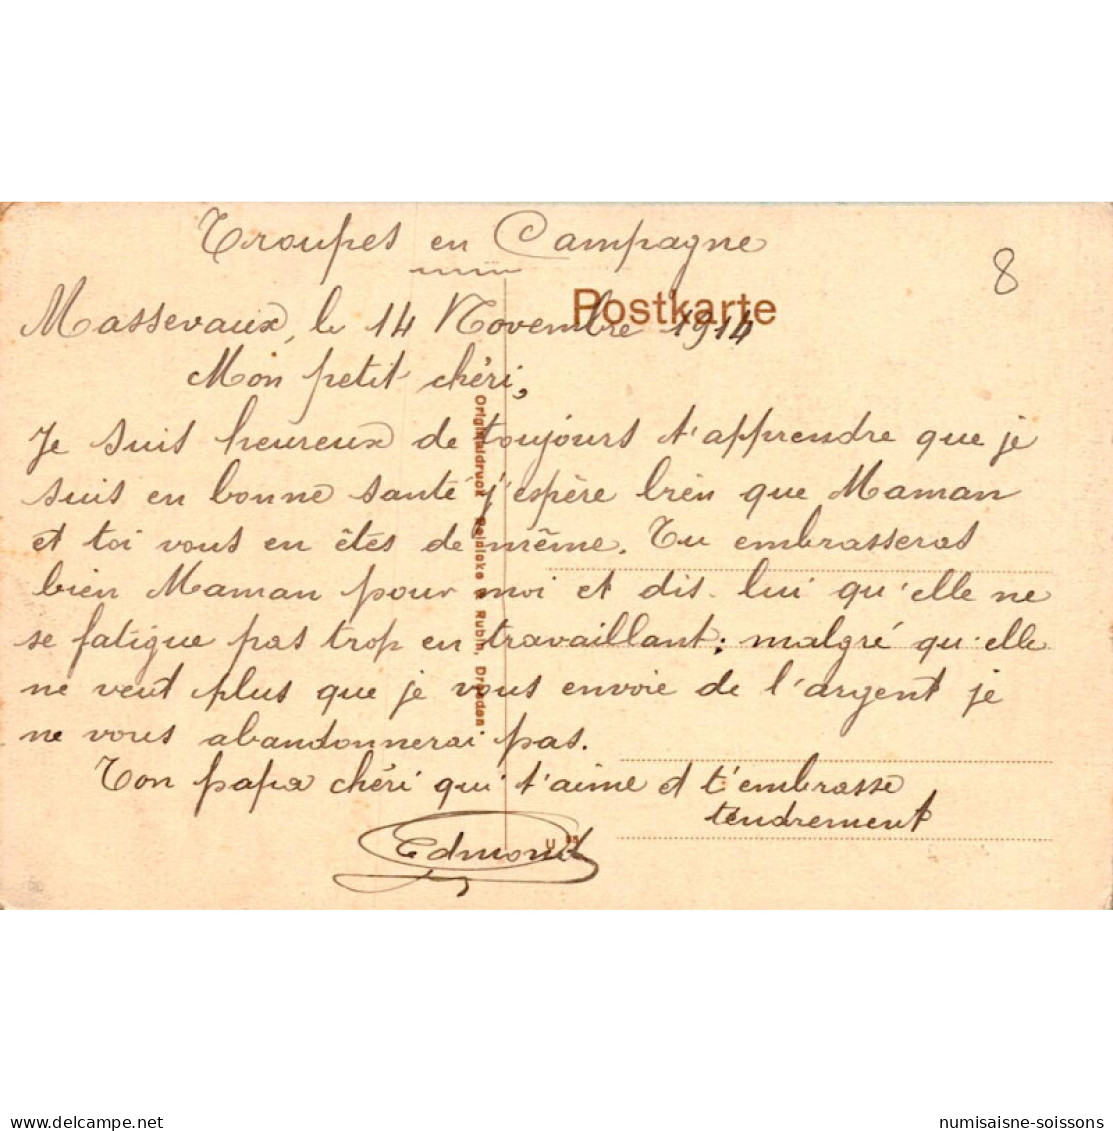 Troupes en Campagne
8
Postkarte
Massevaux, le 14 Novembre 1914
Mon petit chéri,
Je suis heureux de toujours t'apprendre que je
suis en bonne santé j'espère bien que Maman
et toi vous en êtes de même. Tu embrasseras
bien Maman pour moi et dis-lui qu'elle ne
se fatigue pas trop en travaillant; malgré qu'elle
ne veut plus que je vous envoie de l'argent je
ne vous abandonnerai pas.
Ton papa chéri qui t'aime et t'embrasse
tendrement
Edmond
Originaldruck Reinicke & Rubin, Dresden
delcampe.net
numisaisne-soissons